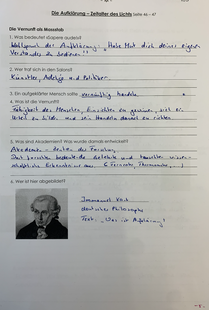 Die Aufklärung – Zeitalter des Lichts Seite 46 - 47
Die Vernunft als Massstab
1. Was bedeutet «Sapere aude»?
Wahlspruch der Aufklärung: "Habe Mut dich deines eigenen
Verstandes zu bedienen"
2. Wer traf sich in den Salons?
Künstler, Adelige und Politiker
3. Ein aufgeklärter Mensch sollte vernünftig handeln.
4. Was ist die Vernunft?
Fähigkeit des Menschen, Einsichten zu gewinnen, sich ein
Urteil zu bilden und sein Handeln danach zu richten
5. Was sind Akademien? Was wurde damals entwickelt?
Akademien der Forschung
Dort forschten bedeutende Gelehrte und tauschten wissen-
schaftliche Erkenntnisse aus
6. Wer ist hier abgebildet?
Immanuel Kant
deutscher Philosoph
Text: "Was ist Aufklärung?"